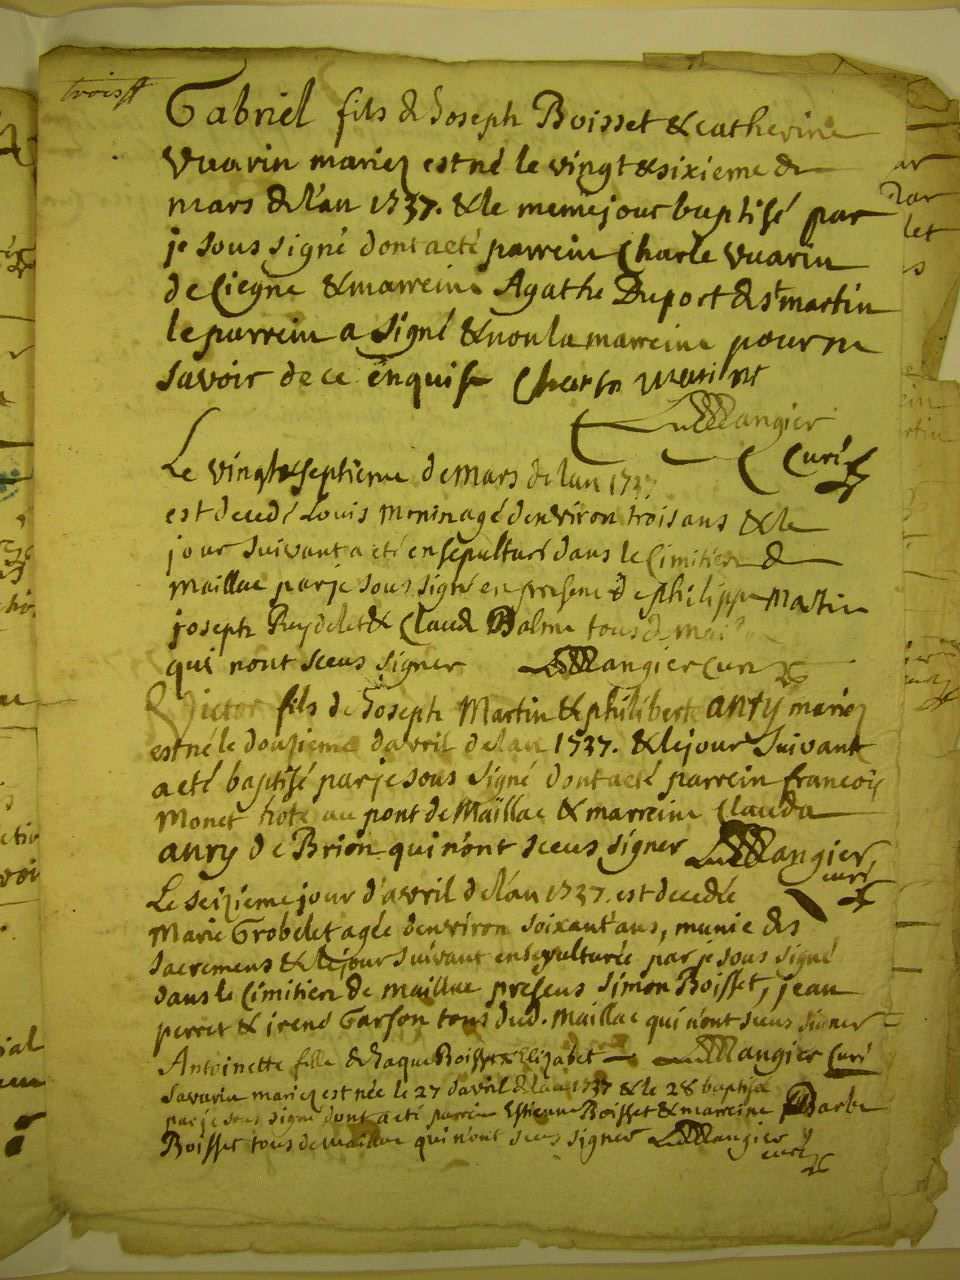 troisff
Gabriel fils de Joseph Boisset & catherine
Vuarin mariez est né le vingt & sixieme de
mars de l'an 1737. & le meme jour baptisé par
je sous signé dont a eté parrein Charle Vuarin
de Ciegne & marreine Agathe Duport de st martin
le parrein a signé & non la marreine pour ne
savoir de ce enquise Vuarin
Mangier
Curé
Le vingt & septieme de Mars de lan 1737
est decedé Louis Monin agé denviron trois ans & le
jour suivant a eté ensepulturé dans le Cimitiere de
maillac par je sous signé en presence de philippe Martin
joseph Reydelet & Claude Balme tous de
qui nont sceus signer Mangier Curé
Victor fils de Joseph Martin & philiberte anry mariez
est né le douzieme davril de lan 1737. & le jour suivant
a eté baptisé par je sous signé dont a eté parrein francois
Monet hote au pont de Maillac & marreine Clauda
anry de Brion qui n'ont sceus signer Mangier,
curé
Le seizieme jour d'avril de l'an 1737. est decedée
Marie Grobelet agée denviron soixant'ans, munie des
sacremens & le jour suivant ensepulturée par je sous signé
dans le Cimitiere de maillac presens simon Boisset, jean
perret & irené Garson tous dud. Maillac qui n'ont sceus signer
Antoinette fille de Jaque Boisset & Elizabet Mangier Curé
Savarin mariez est née le 27 davril de lan 1737 & le 28 baptisée
par je sous signé dont a eté parrein Estienne Boisset & marreine Barbe
Boisset tous de maillac qui n'ont sceus signer Mangier
curé